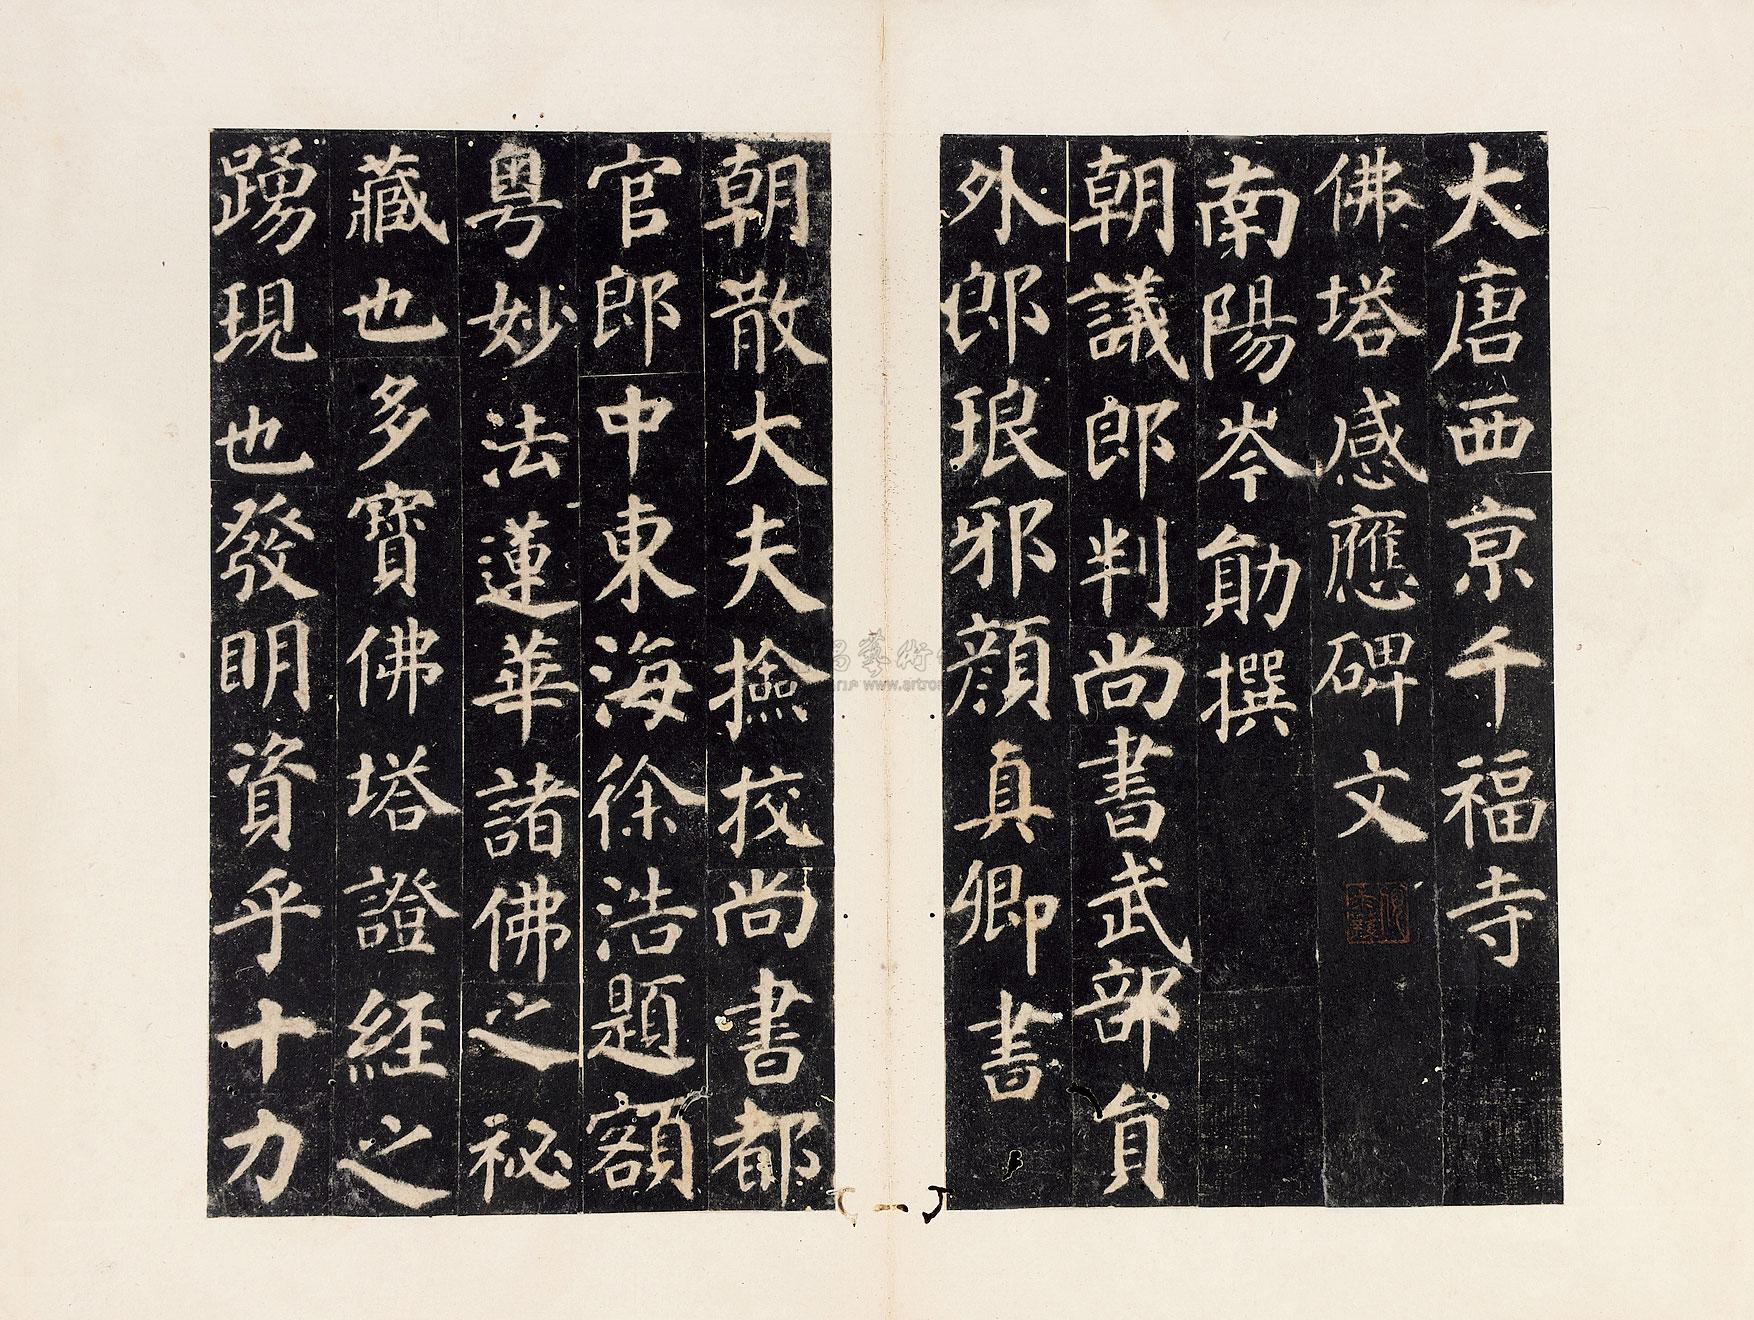 大唐西京千福寺
佛塔感應碑文
南陽岑勛撰
朝議郎判尚書武部員
外郎琅邪顏真卿書
朝散大夫撿挍尚書都
官郎中東海徐浩題額
粵妙法蓮華諸佛之祕
藏也多寶佛塔證經之
踴現也發明資乎十力
www.artron